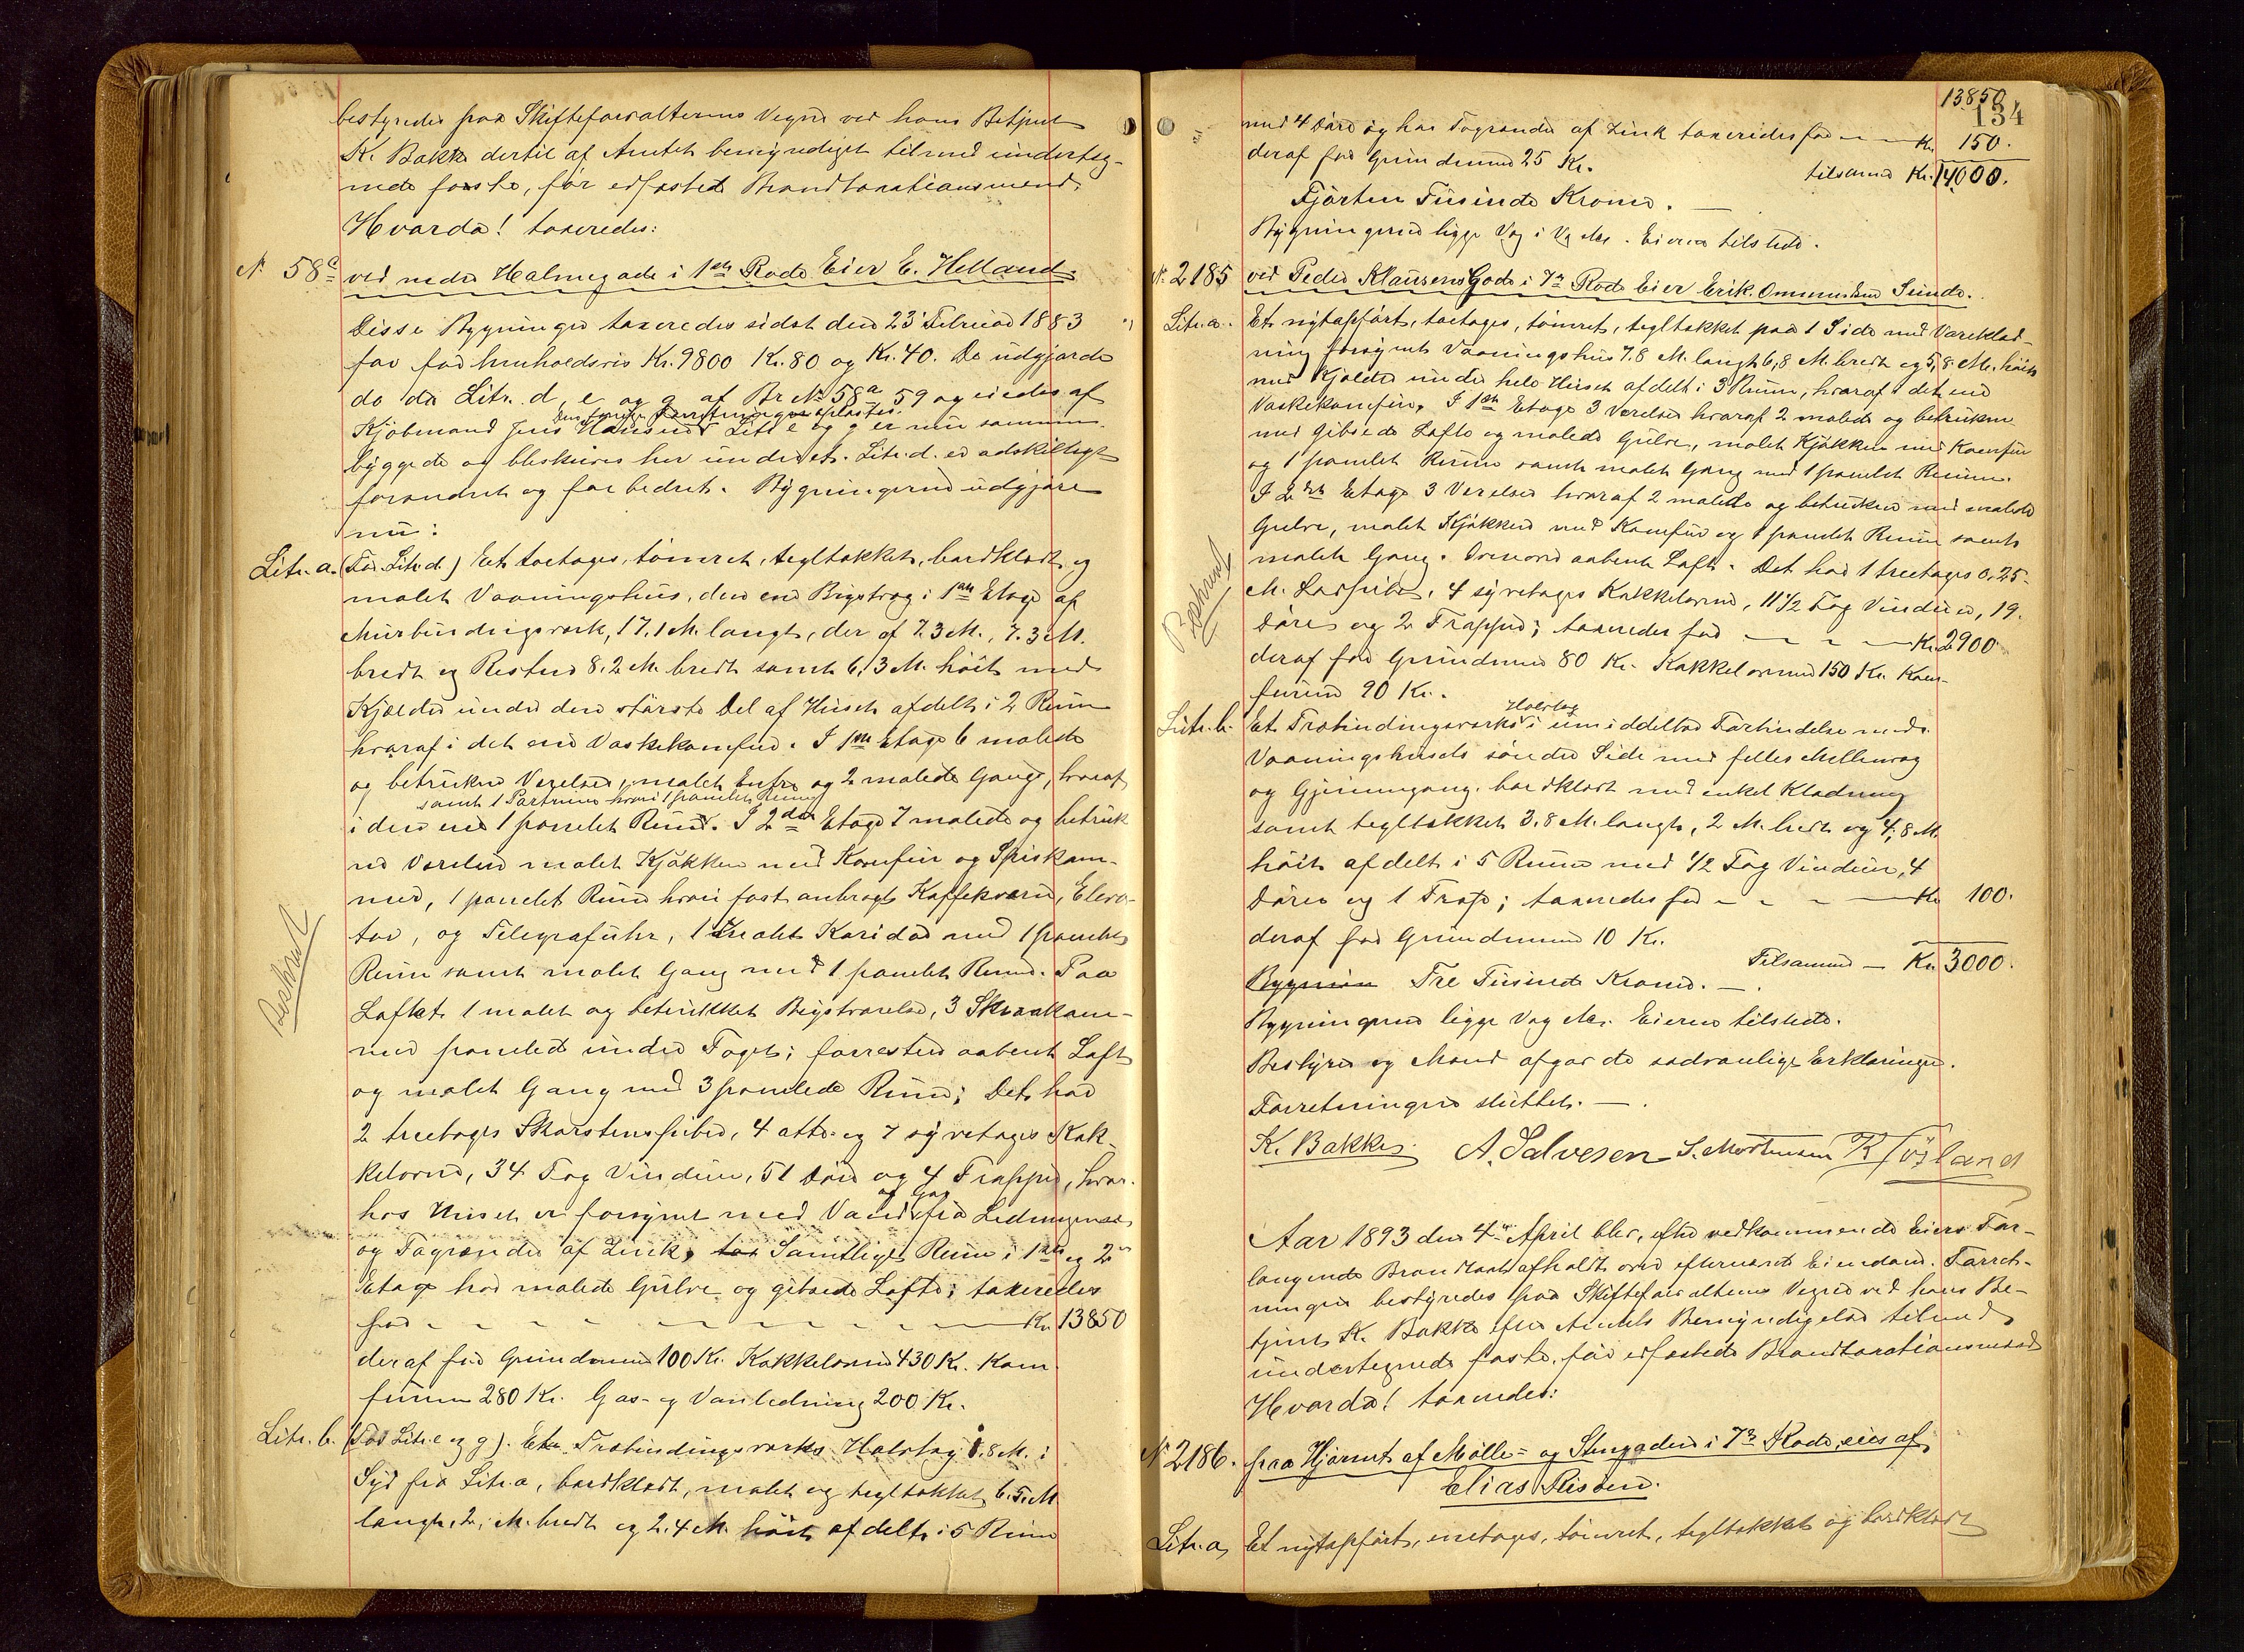 bestyredes paa Skifteforvalterens Vegne ved hans Betjent
K. Bakke dertil af Amtet bemyndiget tilmed underteg-
nede faste, før edfæstede Brandtaxationsmænd.
Hvorda! taxeredes:
N. 58c ved nedre Holmegade i 1ste Rode Eier E. Helland.
Disse Bygninger taxeredes sidst den 23 Februar 1883
for henholdsvis Kr. 9800 Kr. 80 og Kr. 40. De udgjorde
da Litr. d, e og g af Br No 58a, 59 og eiedes af
Kjøbmand Jens Hansen. Litr e og g er nu sammen-
byggede og beskrives her under et. Litr. d. er adskilligt
forandret og forbedret. Bygningerne udgjøre
nu:
Litr. a. (Før Litr. d) Et toetages, tømret, tegltækket, bordklædt og
malet Vaaningshus, den ene Bagstvæg i 1ste Etage af
Murbindingsværk, 17,1 M. langt, der af 7.3 M., 7.3 M.
bredt og Resten 8,2 M. bredt samt 6,3 M. høit med
Kjælder under den største Del af Huset afdelt i 2 Rum
hvoraf i det ene Vaskekomfur. I 1ste Etage 6 malede
og betrukne Værelser, malet Entre og 2 malede Gange, hvoraf
samt 1 hvori 1 panelet Rum
i den ene 1 panelet Rum. I 2den Etage 7 malede og betruk-
ne Værelser malet Kjøkken med Komfur og Spiskam-
mer, 1 panelet Rum hvori fast anbragt Kaffekværn, Eleva-
tor, og Telegrafuhr, 1 malet Koridor med 1 panelet
Rum samt malet Gang med 1 panelet Rum. Paa
Loftet 1 malet og betrukket Bagstværelse, 3 Skraakam-
mer panelede under Taget; forresten aabent Loft
og malet Gang med 3 panelede Rum; Det har
2 treetages Skorstenspiber, 4 otte- og 7 syvetages Kak-
kelovne, 34 Fag Vinduer, 51 Døre og 4 Trapper, hvor-
hos Huset er forsynet med Vand fra Ledningerne
og Gas
og Tagrender af Zink, Samtlige Rum i 1ste og 2den
Etage har malede Gulve og gibsede Lofter; taxeredes
for - - - Kr 13850
deraf for Grundmur 100 Kr. Kakkelovne 430 Kr. Kom
furene 280 Kr. Gas- og Vanledning 200 Kr.
Litr. b. (Før Litr. e og g). Et Træbindingsværks Halvtag 1.8 M. i
Syd fra Litr. a, bordklædt, malet og tegltækket 6.5 M
langt, 2, M. bredt og 2.4 M. høit afdelt i 5 Rum
Beskrevet
13850
134
med 4 Døre og har Tagrender af Zink taxeredes for - - Kr. 150.
deraf for Grundmur 25 Kr.
tilsamen Kr. 14000.
Fjorten Tusinde Kroner.
Bygningerne ligge Væg i Væg Mr. Eieren tilstede.
N. 2185 ved Peder Klausens Gade i 7de Rode Eier Erik Ommundsen Sunde.
Litr. a. Et nytopført, toetages, tømret, tegltækket paa 1 Side med Vareklæd-
ning forsynet Vaaningshus 7.8 M. langt 6,8 M. bredt og 5,8 M. høit
med Kjælder under hele Huset afdelt i 3 Rum, hvoraf i det ene
Vaskekomfur. I 1ste Etage 3 Værelser hvoraf 2 malede og betrukne
med Gibsede Lofte og malede Gulve, malet Kjøkken med Komfur
og 1 panelet Rum samt malet Gang med 1 panelet Rum.
I 2den Etage 3 Værelser hvoraf 2 malede og betrukne med malede
Gulve, malet Kjøkken med Komfur og 1 panelet Rum samt
malet Gang. Ovenover aabent Loft. Det har 1 treetages 0,25
M. Rørpibe, 4 syvetages Kakkelovne, 11 1/2 Fag Vinduer, 19
Døre og 2 Trapper; taxeredes for - - - Kr. 2900
deraf for Grundmur 80 Kr. Kakkelovne 150 Kr. Kom-
furene 90 Kr.
Beskrevet
Halvtag
Litr. b. Et Træbindingsværks i umiddelbar Forbindelse med
Vaaningshusets søndre Side med fælles Mellemvæg
og Gjennemgang. bordklædt med enkel Klædning
samt tegltækket 3.8 M. langt, 2 M. bredt og 4,8 M.
høit afdelt i 5 Rum med 1/2 Fag Vinduer, 4
Døre og 1 Trap; taxeredes for - - - Kr 100.
deraf for Grundmur 10 Kr.
Tilsamen - Kr. 3000.
Bygnin Tre Tusinde Kroner.
Bygningerne ligge Væg Mr. Eieren tilstede.
Bestyrer og Mænd afgav de sædvanlige Erklæringer.
Forretningen sluttet.
K. Bakke. A. Salvesen S. Mortensen K Tøsland
Aar 1893 den 4de April blev, efter vedkommende Eiers For-
langende Brandtaxt afholdt over efternævnte Eiendom. Forret-
ningen bestyredes paa Skifteforvalterens Vegne ved hans Be-
tjent K. Bakke efter Amtets Bemyndigelse tilmed
undertegnede faste, før edfæstede Brandtaxationsmænd
Hvorda! taxeredes:
N 2186. paa Hjørnet af Mølle- og Stengaden i 7de Rode, eies af
Elias Nissen.
Litr. a, Et nytopført, enetages, tømret, tegltækket og bordklædt